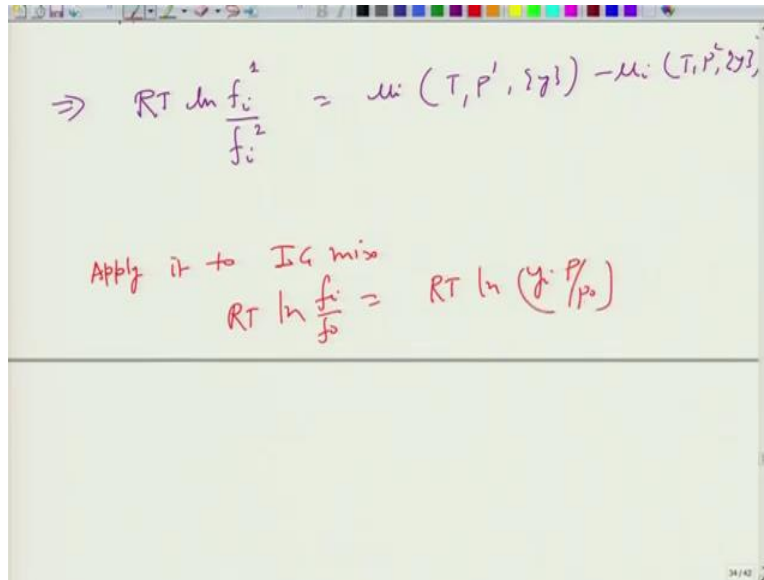 ⇒ RT ln f_i^1 / f_i^2 = μi (T, P^1, {y}) - μi (T, P^2, {y},
Apply it to IG mix
RT ln fi/fo = RT ln (yi P/Po)
34/42